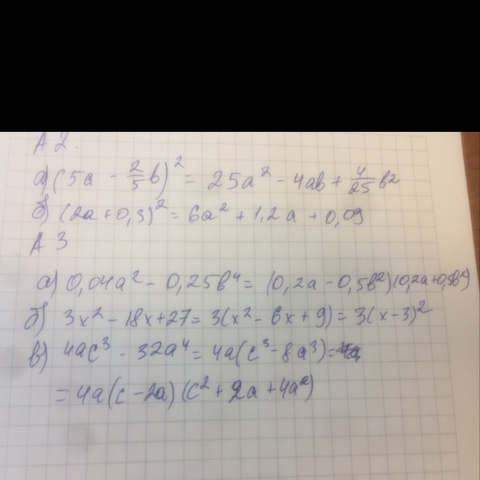 А 2.
а) (5a - 2/5 b)² = 25a² - 4ab + 4/25 b²
б) (2a + 0,3)² = 6a² + 1,2a + 0,09
А 3
а) 0,04a² - 0,25b⁴ = (0,2a - 0,5b²)(0,2a + 0,5b²)
б) 3x² - 18x + 27 = 3(x² - 6x + 9) = 3(x - 3)²
в) 4ac³ - 32a⁴ = 4a(c³ - 8a³) =
= 4a(c - 2a)(c² + 2a + 4a²)